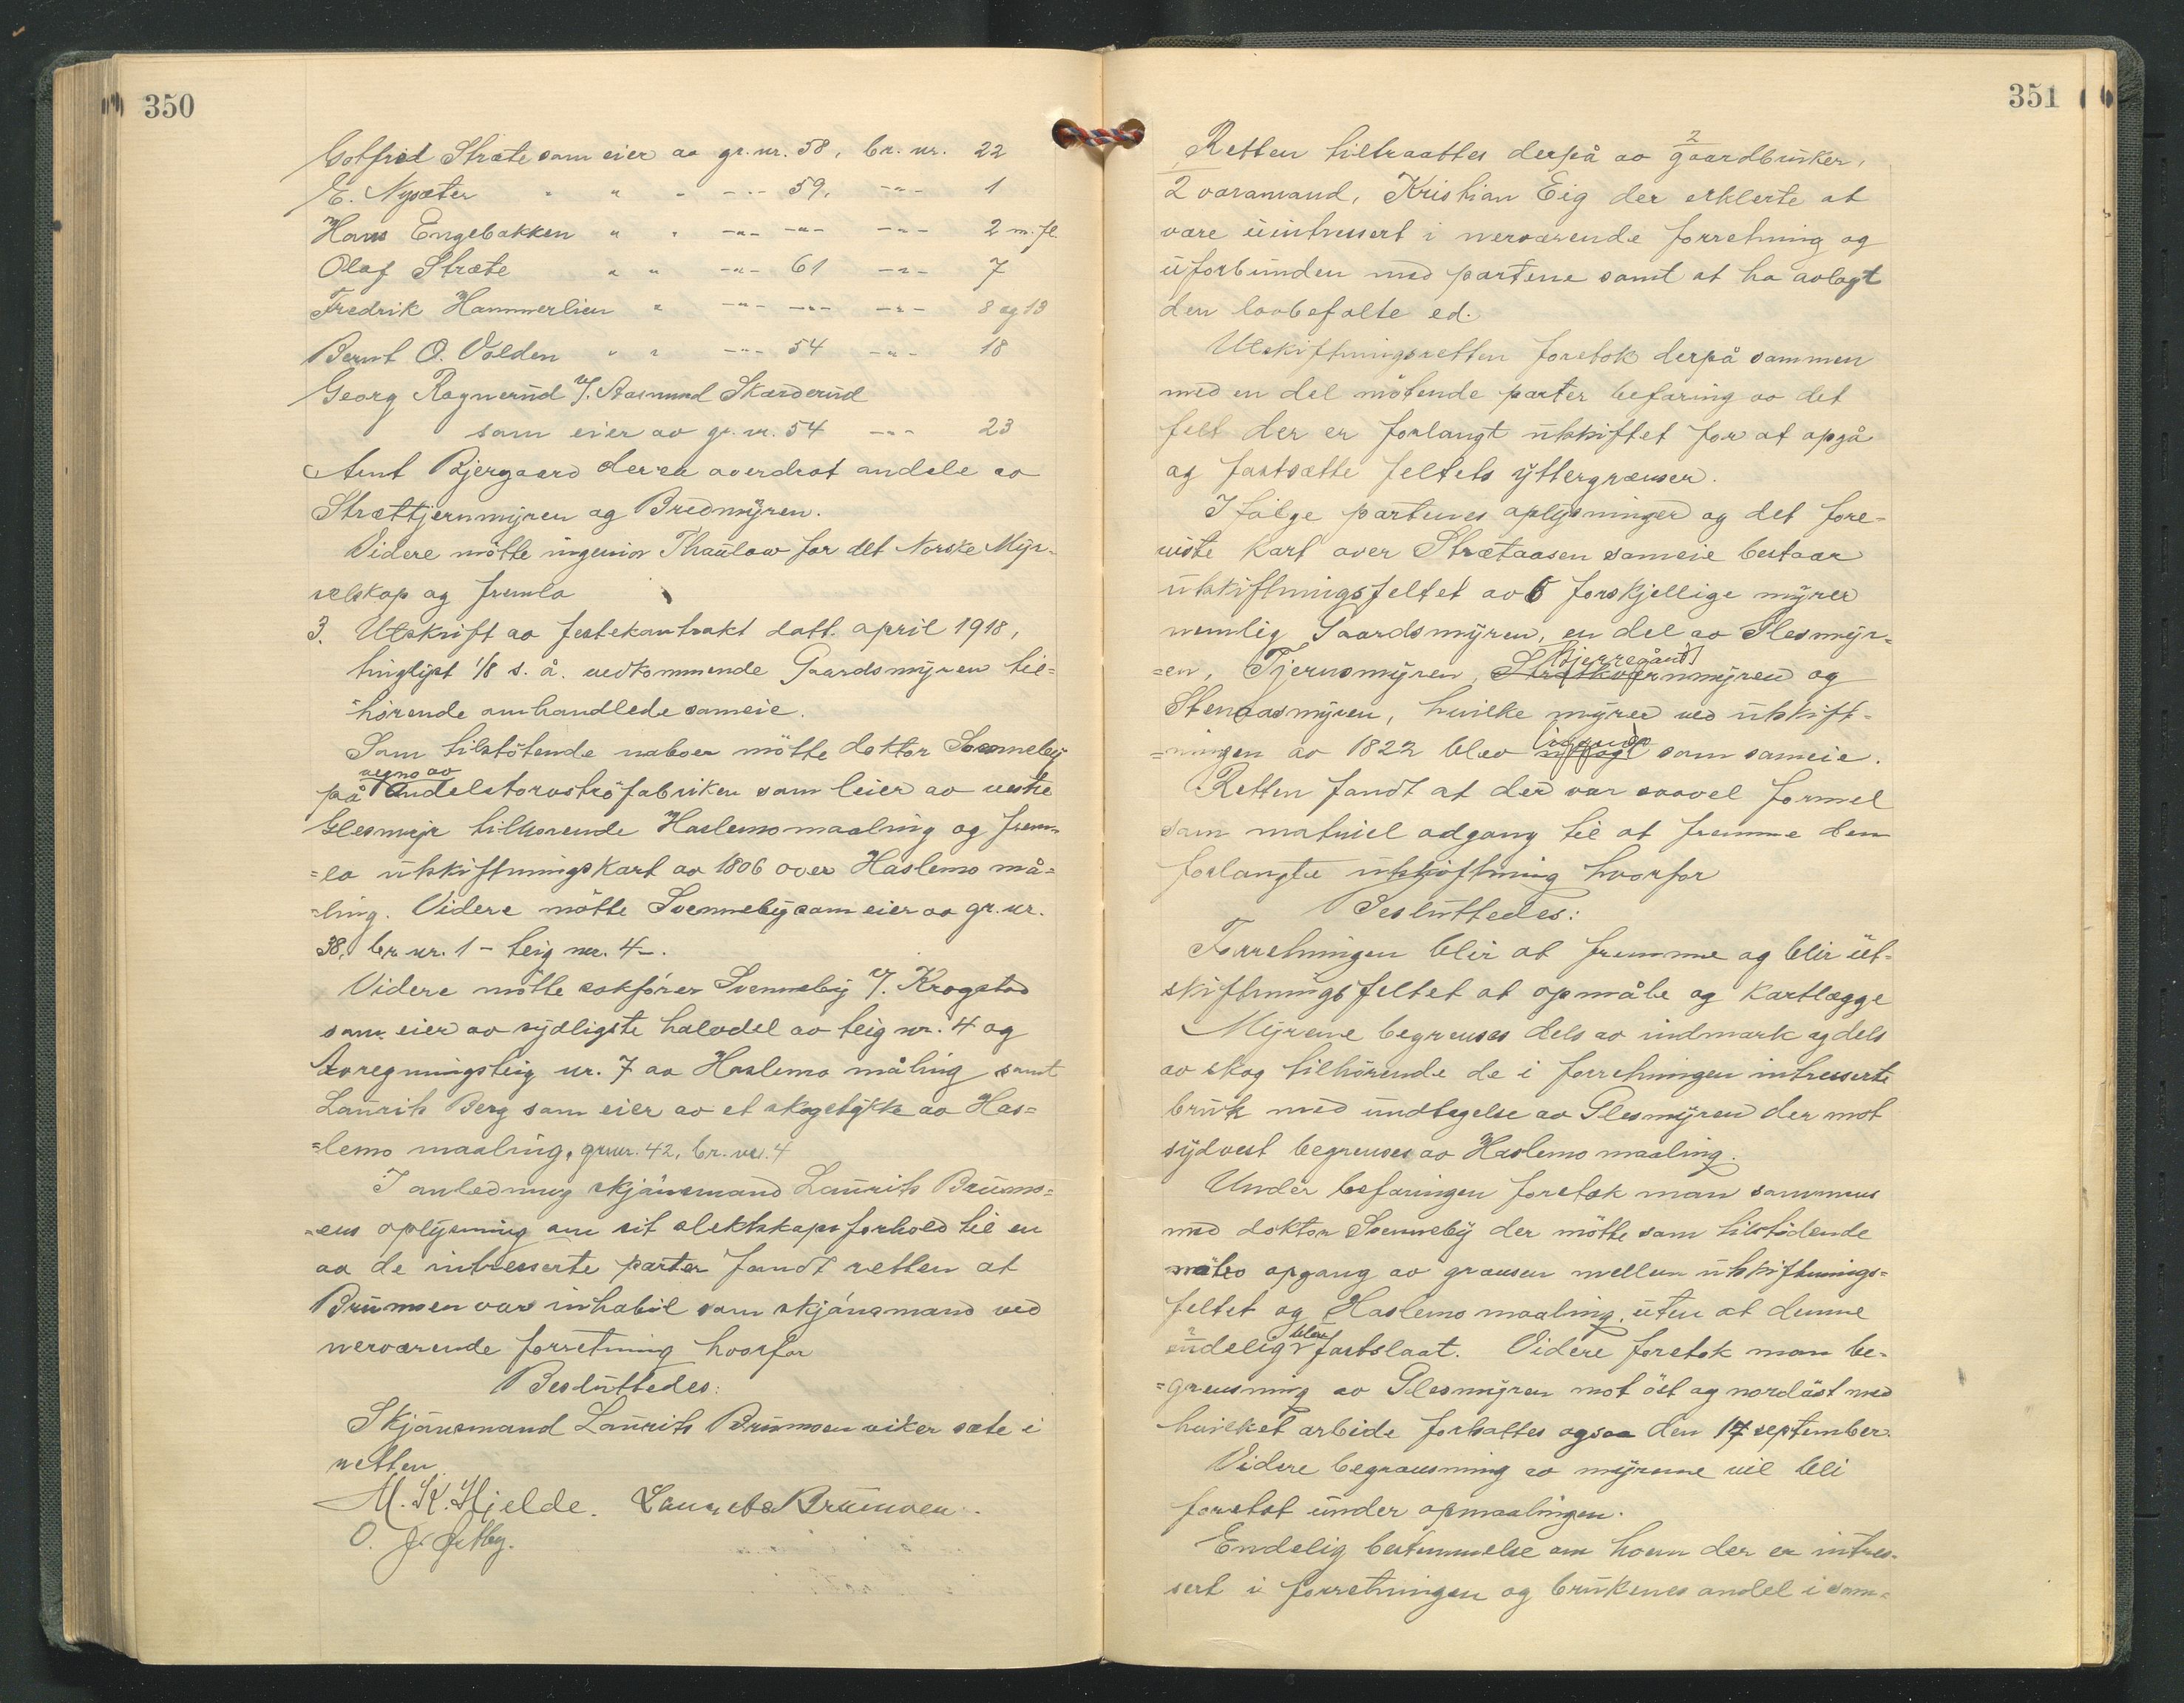 350
Gotfred Stræte som eier av gr. nr. 58, br. nr. 22
E. Nysæter " " " -"- 59, -"- 1
Hans Engebakken " " -"- -"- -"- 2 m. fl.
Olaf Stræte " " -"- 61 -"- 7
Fredrik Hammerlien " -"- -"- -"- 8 og 13
Bernt O. Volden " " -"- 54 -"- 18
Georg Ragnerud v/ Aasmund Skarderud
som eier av gr. nr. 54 -"- 23
Arnt Bjergaard der er overdrat andele av
Strættjernmyren og Bredmyren.
Videre møtte ingeniør Thaulow for det Norske Myr-
selskap og fremla
3. Utskrift av festekontrakt datt. april 1918,
tinglyst 1/8 s. å. vedkommende Gaardsmyren til=
hørende omhandlede sameie.
Som tilstøtende naboer møtte doktor Svenneby
på vegne av Andelstorvstrøfabriken som leier av vestre
Glesmyr tilhørende Haslemomaaling og frem=
=la utskiftningskart av 1806 over Haslemo må=
=ling. Videre møtte Svenneby som eier av gr. nr.
38, br. nr. 1 - teig nr. 4 -.
Videre møtte sakfører Svenneby v/. Krogstad
som eier av sydligste halvdel av teig nr. 4 og
Avregningsteig nr. 7 av Haslemo måling samt
Laurits Berg som eier av et skogstykke av Has=
=lemo maaling, grnr. 42, br. nr. 4
I anledning skjønsmand Laurits Brumo=
=ens oplysning om sit slektskapsforhold til en
av de intresserte parter fandt retten at
Brumoen var inhabil som skjønsmand ved
nerværende forretning hvorfor
Besluttedes:
Skjønsmand Laurits Brumoen viker sæte i
retten.
M. K. Hjelde. Laurits Brumoen.
O. J.
351
Retten tiltraattes derpå av 2 gaardbruker,
2 varamand, Kristian Eig der erklerte at
være uintressert i nerværende forretning og
uforbunden med partene samt at ha avlagt
den lovbefalte ed.
Utskiftningsretten foretok derpå sammen
med en del møtende parter befaring av det
felt der er forlangt utskiftet for at opgå
og fastsætte feltets yttergrænser.
Ifølge partenes oplysninger og det fore-
viste kart over Strætaasen sameie bestaar
utskiftningsfeltet av 6 forskjellige myrer
nemlig Gaardsmyren, en del av Glesmyr=
=en, Tjernsmyren, Strætkværnmyren og
Stenaasmyren, hvilke myrer ved utskift=
=ningen av 1822 blev som sameie.
Retten fandt at der var saavel formel
som matriel adgang til at fremme den
forlangte utskiftning hvorfor
Besluttedes:
Forretningen blir at fremme og blir ut-
skiftningsfeltet at opmåle og kartlægge
Myrene begrenses dels av indmark og dels
av skog tilhørende de i forretningen intresserte
bruk med undtagelse av Glesmyren der mot
sydvest begrenses av Haslemo maaling.
Under befaringen foretok man sammen
med doktor Svenneby der møtte som tilstødende
nabo opgang av grænsen mellem utskiftnings=
feltet og Haslemo maaling, uten at denne
endelig blev fastslaat. Videre foretok man be-
=grensning av Glesmyren mot øst og nordøst med
hvilket arbeide fortsattes ogsaa den 17 september.
Videre begrænsning av myrene vil bli
foretat under opmaalingen.
Endelig bestemmelse om hvem der er intres-
sert i forretningen og brukenes andel i sam-